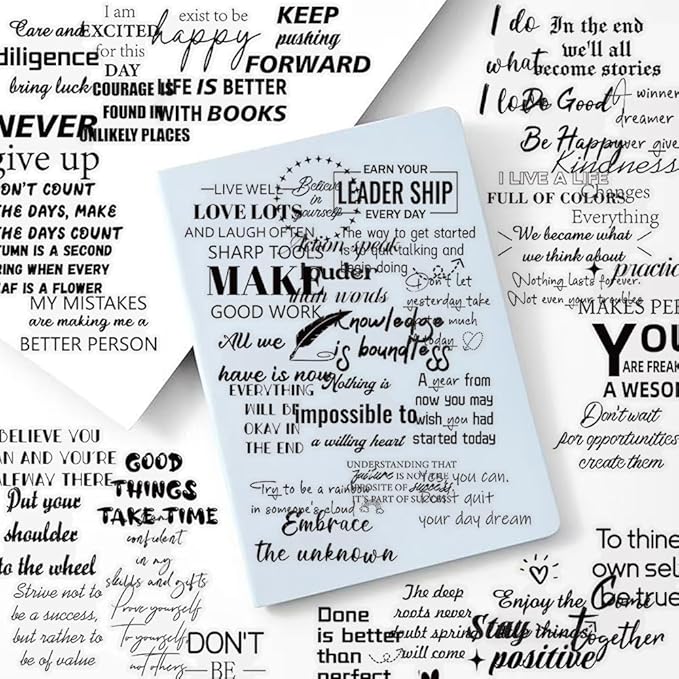 Care and
diligence
bring luck
I am
EXCITED
for this
DAY
exist to be
happy
KEEP
pushing
FORWARD
COURAGE IS
FOUND IN
UNLIKELY PLACES
LIFE IS BETTER
WITH BOOKS
NEVER
give up
DON'T COUNT
THE DAYS, MAKE
THE DAYS COUNT
AUTUMN IS A SECOND
SPRING WHEN EVERY
LEAF IS A FLOWER
MY MISTAKES
are making me a
BETTER PERSON
I do
what
I love
In the end
we'll all
become stories
Do Good
Be Happy
A winner
dreamer
never give
Kindness
Changes
Everything
I LIVE A LIFE
FULL OF COLORS
We became what
we think about
practic
Nothing lasts forever.
Not even your troubles
MAKES PER
YOU
ARE FREAK
AWESOM
Don't wait
for opportunities
create them
LIVE WELL
LOVE LOTS
AND LAUGH OFTEN
Believe
in
yourself
EARN YOUR
LEADER SHIP
EVERY DAY
SHARP TOOLS
MAKE
GOOD WORK
Action speak
louder
than words
The way to get started
is to quit talking and
begin doing
Don't let
yesterday take
up too much
of today
Knowledge
is boundless
All we
have is now
EVERYTHING
WILL BE
OKAY IN
THE END
Nothing is
impossible to
a willing heart
A year from
now you may
wish you had
started today
UNDERSTANDING THAT
failure IS NOT THE
OPPOSITE OF success
IT'S PART OF SUCCESS
Yes you can.
Don't quit
your day dream
Try to be a rainbow
in someone's cloud
Embrace
the unknown
BELIEVE YOU
CAN AND YOU'RE
HALFWAY THERE
GOOD
THINGS
TAKE TIME
Put your
shoulder
to the wheel
confident
in my
skills and gifts
Strive not to
be a success,
but rather to
be of value
Prove yourself
to yourself
not others
DON'T
BE
Done
is better
than
perfect
The deep
roots never
doubt spring
will come
Enjoy the
little things
Stay
positive
Come
together
To thine
own self
be true